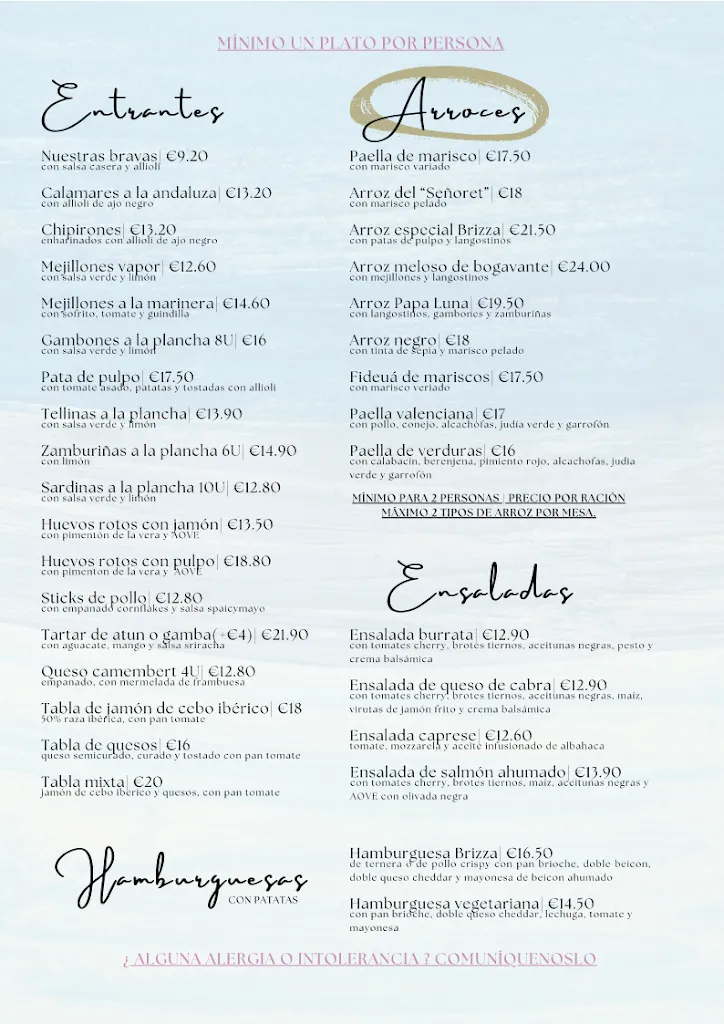 MÍNIMO UN PLATO POR PERSONA
Entrantes
Nuestras bravas| €9.20
con salsa casera y allioli
Calamares a la andaluza| €13.20
con allioli de ajo negro
Chipirones| €13.20
enharinados con allioli de ajo negro
Mejillones vapor| €12.60
con salsa verde y limón
Mejillones a la marinera| €14.60
con sofrito, tomate y guindilla
Gambones a la plancha 8U| €16
con salsa verde y limón
Pata de pulpo| €17.50
con tomate asado, patatas y tostadas con allioli
Tellinas a la plancha| €13.90
con salsa verde y limón
Zamburiñas a la plancha 6U| €14.90
con limón
Sardinas a la plancha 10U| €12.80
con salsa verde y limón
Huevos rotos con jamón| €13.50
con pimentón de la vera y AOVE
Huevos rotos con pulpo| €18.80
con pimentón de la vera y AOVE
Sticks de pollo| €12.80
con empanado cornflakes y salsa spaicymayo
Tartar de atun o gamba(+€4)| €21.90
con aguacate, mango y salsa sriracha
Queso camembert 4U| €12.80
empanado, con mermelada de frambuesa
Tabla de jamón de cebo ibérico| €18
50% raza ibérica, con pan tomate
Tabla de quesos| €16
queso semicurado, curado y tostado con pan tomate
Tabla mixta| €20
jamón de cebo ibérico y quesos, con pan tomate
Arroces
Paella de marisco| €17.50
con marisco variado
Arroz del “Señoret”| €18
con marisco pelado
Arroz especial Brizza| €21.50
con patas de pulpo y langostinos
Arroz meloso de bogavante| €24.00
con mejillones y langostinos
Arroz Papa Luna| €19.50
con langostinos, gambones y zamburiñas
Arroz negro| €18
con tinta de sepia y marisco pelado
Fideuá de mariscos| €17.50
con marisco veriado
Paella valenciana| €17
con pollo, conejo, alcachofas, judía verde y garrofón
Paella de verduras| €16
con calabacín, berenjena, pimiento rojo, alcachofas, judía
verde y garrofón
MÍNIMO PARA 2 PERSONAS | PRECIO POR RACIÓN
MÁXIMO 2 TIPOS DE ARROZ POR MESA.
Ensaladas
Ensalada burrata| €12.90
con tomates cherry, brotes tiernos, aceitunas negras, pesto y
crema balsámica
Ensalada de queso de cabra| €12.90
con tomates cherry, brotes tiernos, aceitunas negras, maíz,
virutas de jamón frito y crema balsámica
Ensalada caprese| €12.60
tomate, mozzarela y aceite infusionado de albahaca
Ensalada de salmón ahumado| €13.90
con tomates cherry, brotes tiernos, maíz, aceitunas negras y
AOVE con olivada negra
Hamburguesas
CON PATATAS
Hamburguesa Brizza| €16.50
de ternera o de pollo crispy con pan brioche, doble beicon,
doble queso cheddar y mayonesa de beicon ahumado
Hamburguesa vegetariana| €14.50
con pan brioche, doble queso cheddar, lechuga, tomate y
mayonesa
¿ ALGUNA ALERGIA O INTOLERANCIA ? COMUNÍQUENOSLO